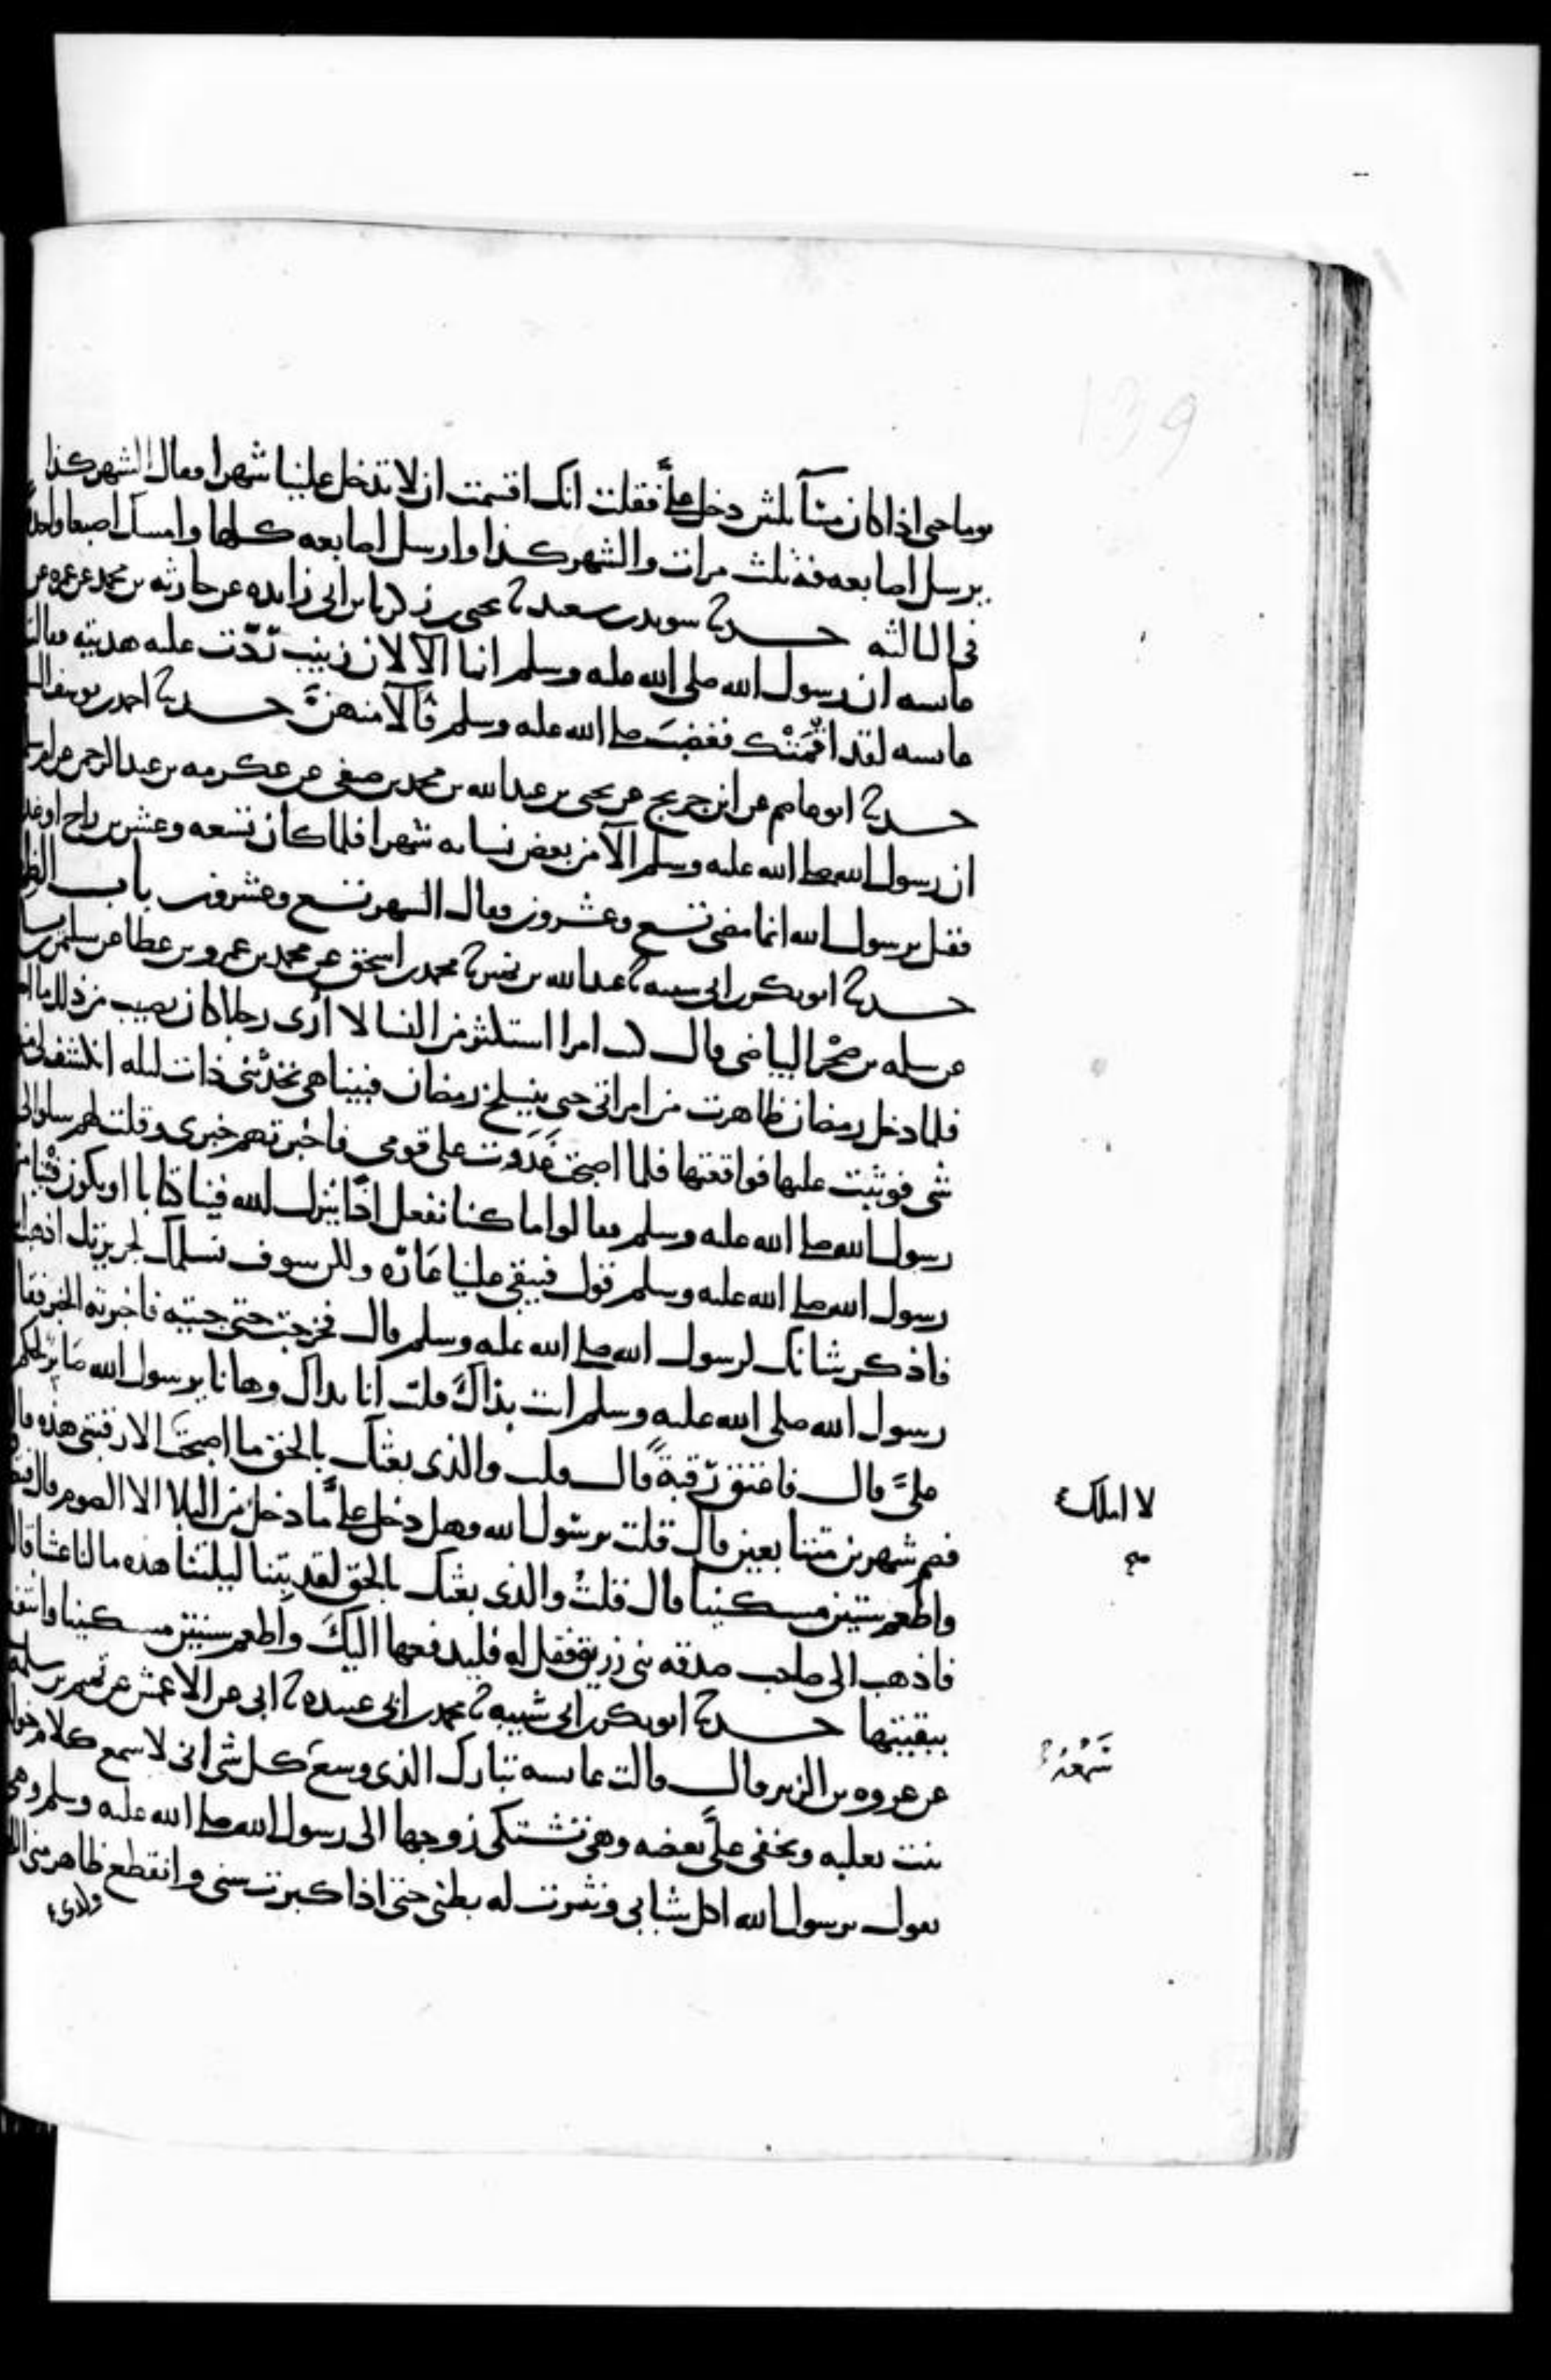 يوما حتى اذا كان مسآ ثلثين دخل علىَّ فقلت انك اقسمت ان لا تدخل علينا شهرا فقال الشهر كذا
يرسل اصابعه فيه ثلث مرات والشهر كذا وارسل اصابعه كلها وامسك اصبعا واحدا
في الثالثه حدثنا سويد بن سعيد ثنا يحيى بن زكريا بن ابي زايده عن حارثه بن محمد عن عمره عن
عايشه ان رسول الله صلى الله عليه وسلم انما آلا لان زينب ردّت عليه هديته فقالت
عايشه لقد اقمَتْك فغضبَ صلى الله عليه وسلم فآلا منهنَّ حدثنا احمد بن يوسف السلمي
حدثنا ابو عاصم عن ابن جريج عن يحيى بن عبد الله بن محمد بن صيفي عن عكرمه بن عبد الرحمن عن ام سلمه
ان رسول الله صلى الله عليه وسلم آلا من بعض نسايه شهرا فلما كان تسعه وعشرين راح او غدا
فقيل يرسول الله انما مضى تسع وعشرون فقال الشهر تسع وعشرون باب الظهار
حدثنا ابو بكر بن ابي شيبه ثنا عبد الله بن نمير ثنا محمد بن اسحق عن محمد بن عمرو بن عطا عن سليمن بن يسار
عن سلمه بن صخر البياضي قال كنت امرا استكثر من النسا لا أرى رجلا كان يصيب من ذلك ما اصيب
فلما دخل رمضان ظاهرت من امراتي حتى ينسلخ رمضان فبينا هي تحدثني ذات ليله انكشف لي منها
شي فوثبت عليها فواقعتها فلما اصبحت غَدَوت على قومي فاخبرتهم خبري وقلت لهم سلوا لي
رسول الله صلى الله عليه وسلم فقالوا ما كنا نفعل اذًا ينزل الله فينا كتابا او يكون فينا من
رسول الله صلى الله عليه وسلم قول فيبقى علينا عَارُه ولكن سوف نسلمك لجريرتك اذهب انت
فاذكر شانك لرسول الله صلى الله عليه وسلم قال فخرجت حتى جيته فاخبرته الخبر فقال
رسول الله صلى الله عليه وسلم انت بذاكَ قلت انا بذاك وها نا يرسول الله صَابرٌ لحكم الله
عليَّ قال فاعتق رَقبةً قال قلت والذي بعثك بالحق ما اصبحتُ الا رقبتي هذه قال
لا املك
صح
فصم شهرين متتابعين قال قلت يرسول الله وهل دخل علىَّ ما دخل من البلا الا الصوم قال فتصدق
واطعم ستين مسكينا قال قلتُ والذي بعثك بالحق لقد بتنا ليلتنا هذه ما لنا عشا قال
فاذهب الى صاحب صدقه بني زريق فقل له فليدفعها اليكَ واطعم ستين مسكينا وانتفع
ببقيتها حدثنا ابو بكر بن ابي شيبه ثنا محمد بن ابي عبيده ثنا ابي عن الاعمش عن تميم بن سلمه
عن عروه بن الزبير قال قالت عايشه تبارك الذي وسعَ كل شي اني لاسمع كلام خوله
سَمْعُهُ
بنت ثعلبه ويخفى علىَّ بعضه وهي تشتكي زوجها الى رسول الله صلى الله عليه وسلم وهي
تقول يرسول الله اكل شبابي ونثرت له بطني حتى اذا كبرت سني وانقطع ظاهر مني
ولدي